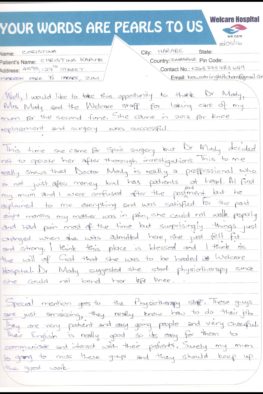 YOUR WORDS ARE PEARLS TO US
Welcare Hospital
WE CARE
Name: CHRISTINA
City: HARARE State:
Patient's Name: CHRISTINA
Country: ZIMBABWE Pin Code:
Address: STREET
Contact No.:
Email:
Well, I would like to take this opportunity to thank Dr Mody,
Mrs Mody and the Welcare staff for taking care of my
mum for the second time. She came in 2013 for knee
replacement and surgery was successful
This time she came for Spine surgery but Dr Mody decided
not to operate her after thorough investigations. This to me
really shows that Doctor Mody is really a professional who
is not just after money but has patients at heart. At first
my mum and I were confused after the but he
explained to me everything and was satisfied. For the past
eight months my mother was in pain, she could not walk properly
and had pain most of the time but surprisingly things just
changed when she was admitted here, she just felt fit
and strong. I think this place is blessed and I think its
the will of God that she was to be healed @ Welcare
Hospital. Dr Mody suggested she start physiotherapy since
she could not bend her left knee.
Special mention goes to the Physiotherapy staff. These guys
are just amazing, they really know how to do their job.
They are very patient and easy going people and very cheerful.
Their English is really good so its easy for them to
communicate and interact with their patients. Surely my mum
is going to miss these guys and they should keep up
the good work